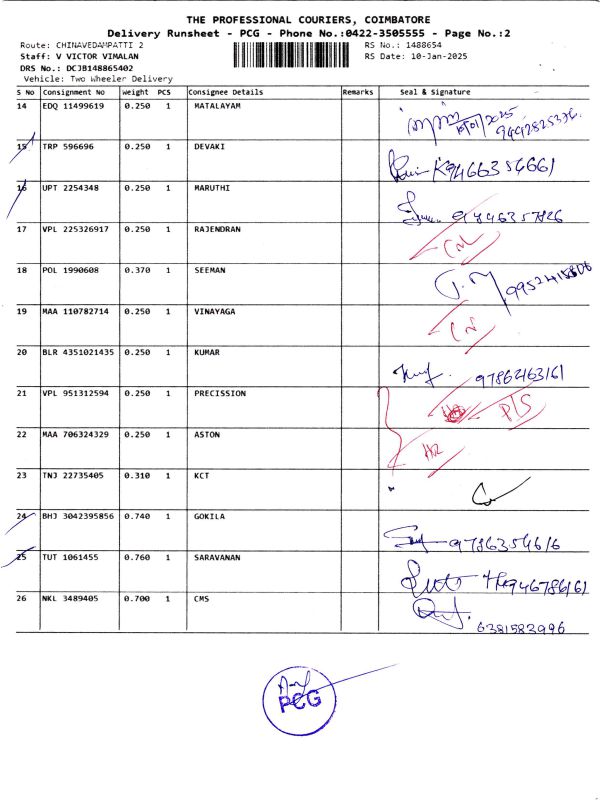 THE PROFESSIONAL COURIERS, COIMBATORE
Delivery Runsheet - PCG - Phone No.:0422-3505555 - Page No.:2
Route: CHINAVEDAMPATTI 2 RS No.: 1488654
Staff: V VICTOR VIMALAN RS Date: 10-Jan-2025
DRS No.: DCJB148865402
Vehicle: Two Wheeler Delivery
S No Consignment No Weight PCS Consignee Details Remarks Seal & Signature
14 EDQ 11499619 0.250 1 MATALAYAM
10/01/2025
9442825336.
15 TRP 596696 0.250 1 DEVAKI
9466354661
16 UPT 2254348 0.250 1 MARUTHI
9846357826
17 VPL 225326917 0.250 1 RAJENDRAN
CN
18 POL 1990608 0.370 1 SEEMAN
19 MAA 110782714 0.250 1 VINAYAGA
CN
20 BLR 4351021435 0.250 1 KUMAR
9786463161
21 VPL 951312594 0.250 1 PRECISSION
P/S
22 MAA 706324329 0.250 1 ASTON
23 TNJ 22735405 0.310 1 KCT
24 BHJ 3042395856 0.740 1 GOKILA
9786354616
25 TUT 1061455 0.760 1 SARAVANAN
9946786161
26 NKL 3489405 0.700 1 CMS
6381583996
PCG